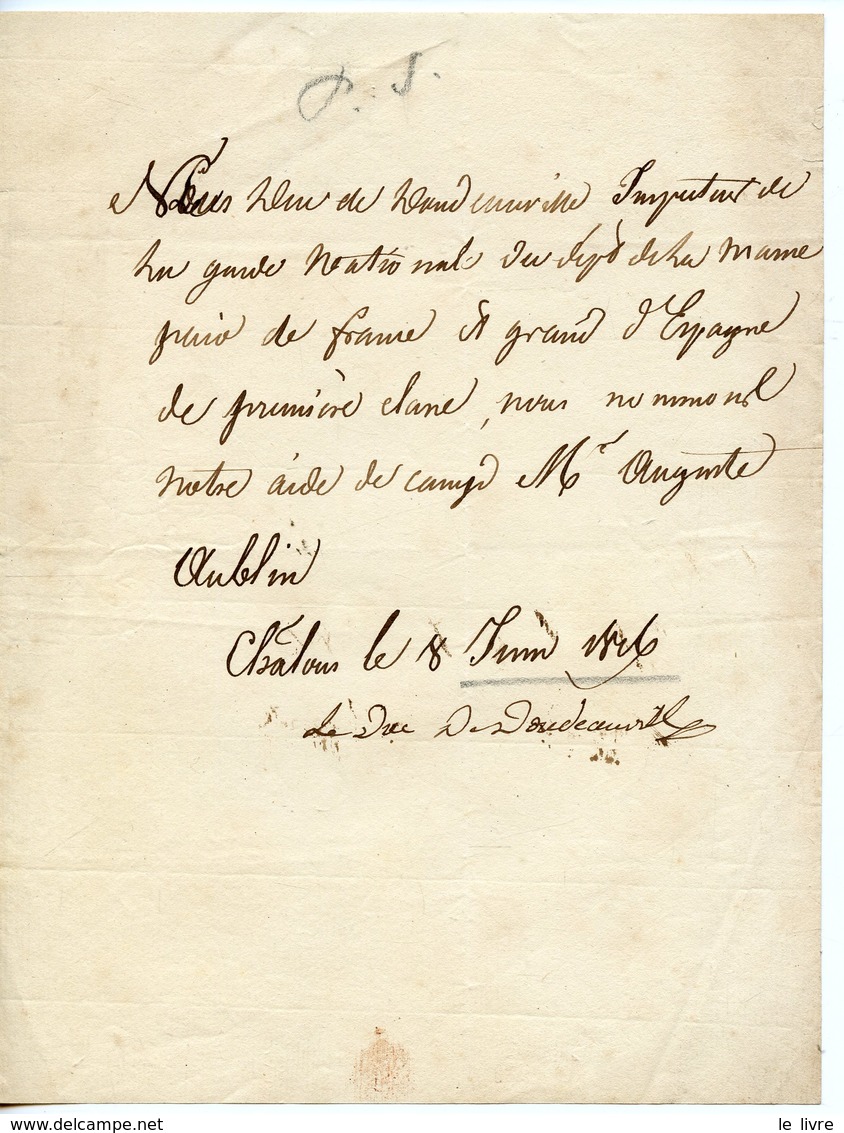 P. S.
Nous Duc de Doudeauville Inspecteur de
La garde Nationale du dép.t de La Marne
pair de france et grand d'Espagne
de première classe, nous nommons
notre aide de camp Mr Auguste
Aublin
Châlons le 8 Juin 1816
Le Duc De Doudeauville
www.delcampe.net
le livre